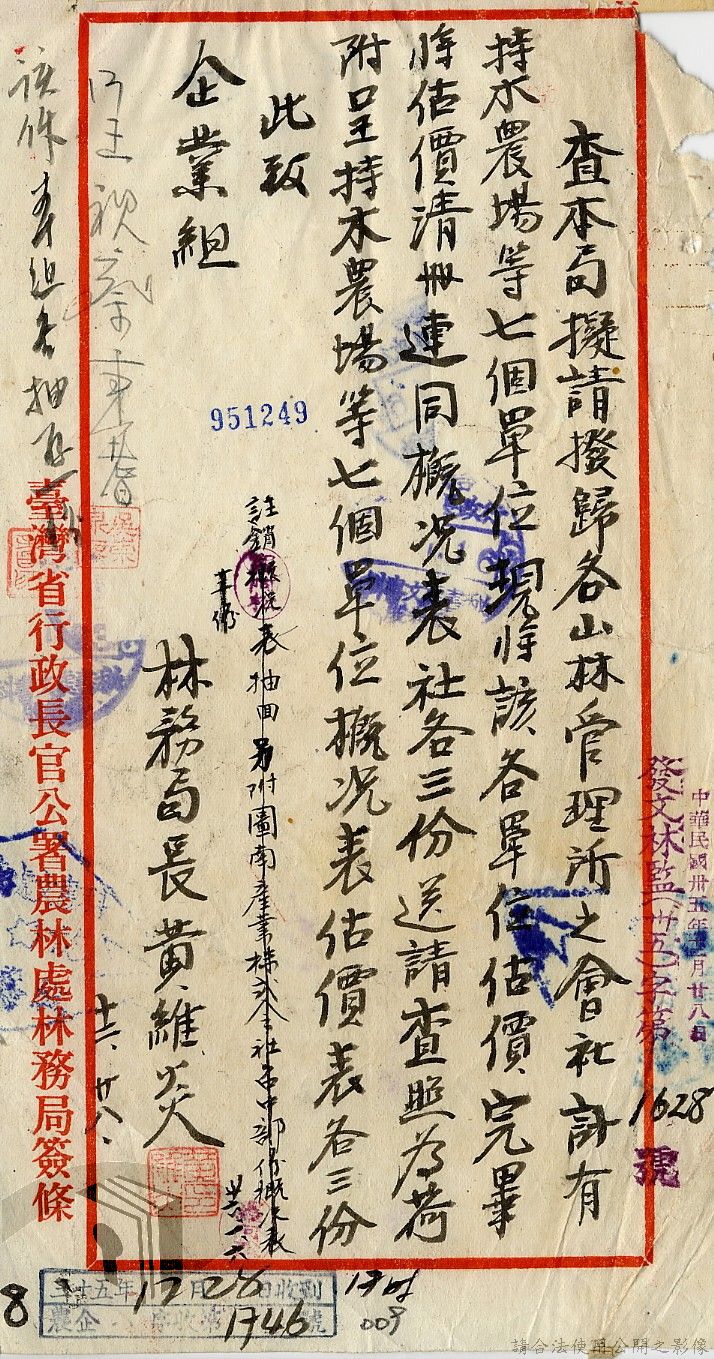 中華民國卅五年十月廿八日
發文林監(卅五)字第1628號
查本局擬請撥歸各山林管理所之會社計有
持木農場等七個單位現將該各單位估價完畢
將估價清冊連同概況表社各三份送請查照為荷
附呈持木農場等七個單位概況表估價表各三份
此致
企業組
951249
註銷概況表抽回另附圖南產業株式会社台中部份概況表
卅六、一、六
林務局長黃維炎
十二、廿八、
臺灣省行政長官公署農林處林務局簽條
卅五年12月28日收到
農企 收 1746號
17時
009
8
請合法使用公開之影像